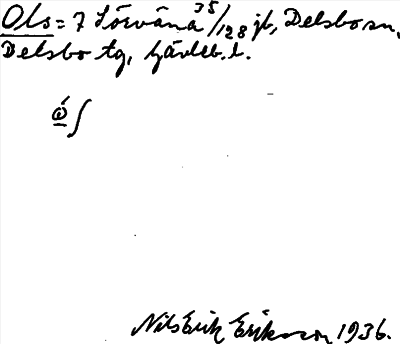 Ols = 7 Sörväna 35/128 jb, Delsbo sn,
Delsbo tg, Gävleb. l.
ώ̱ʃ
Nils Erik Eriksson 1936.